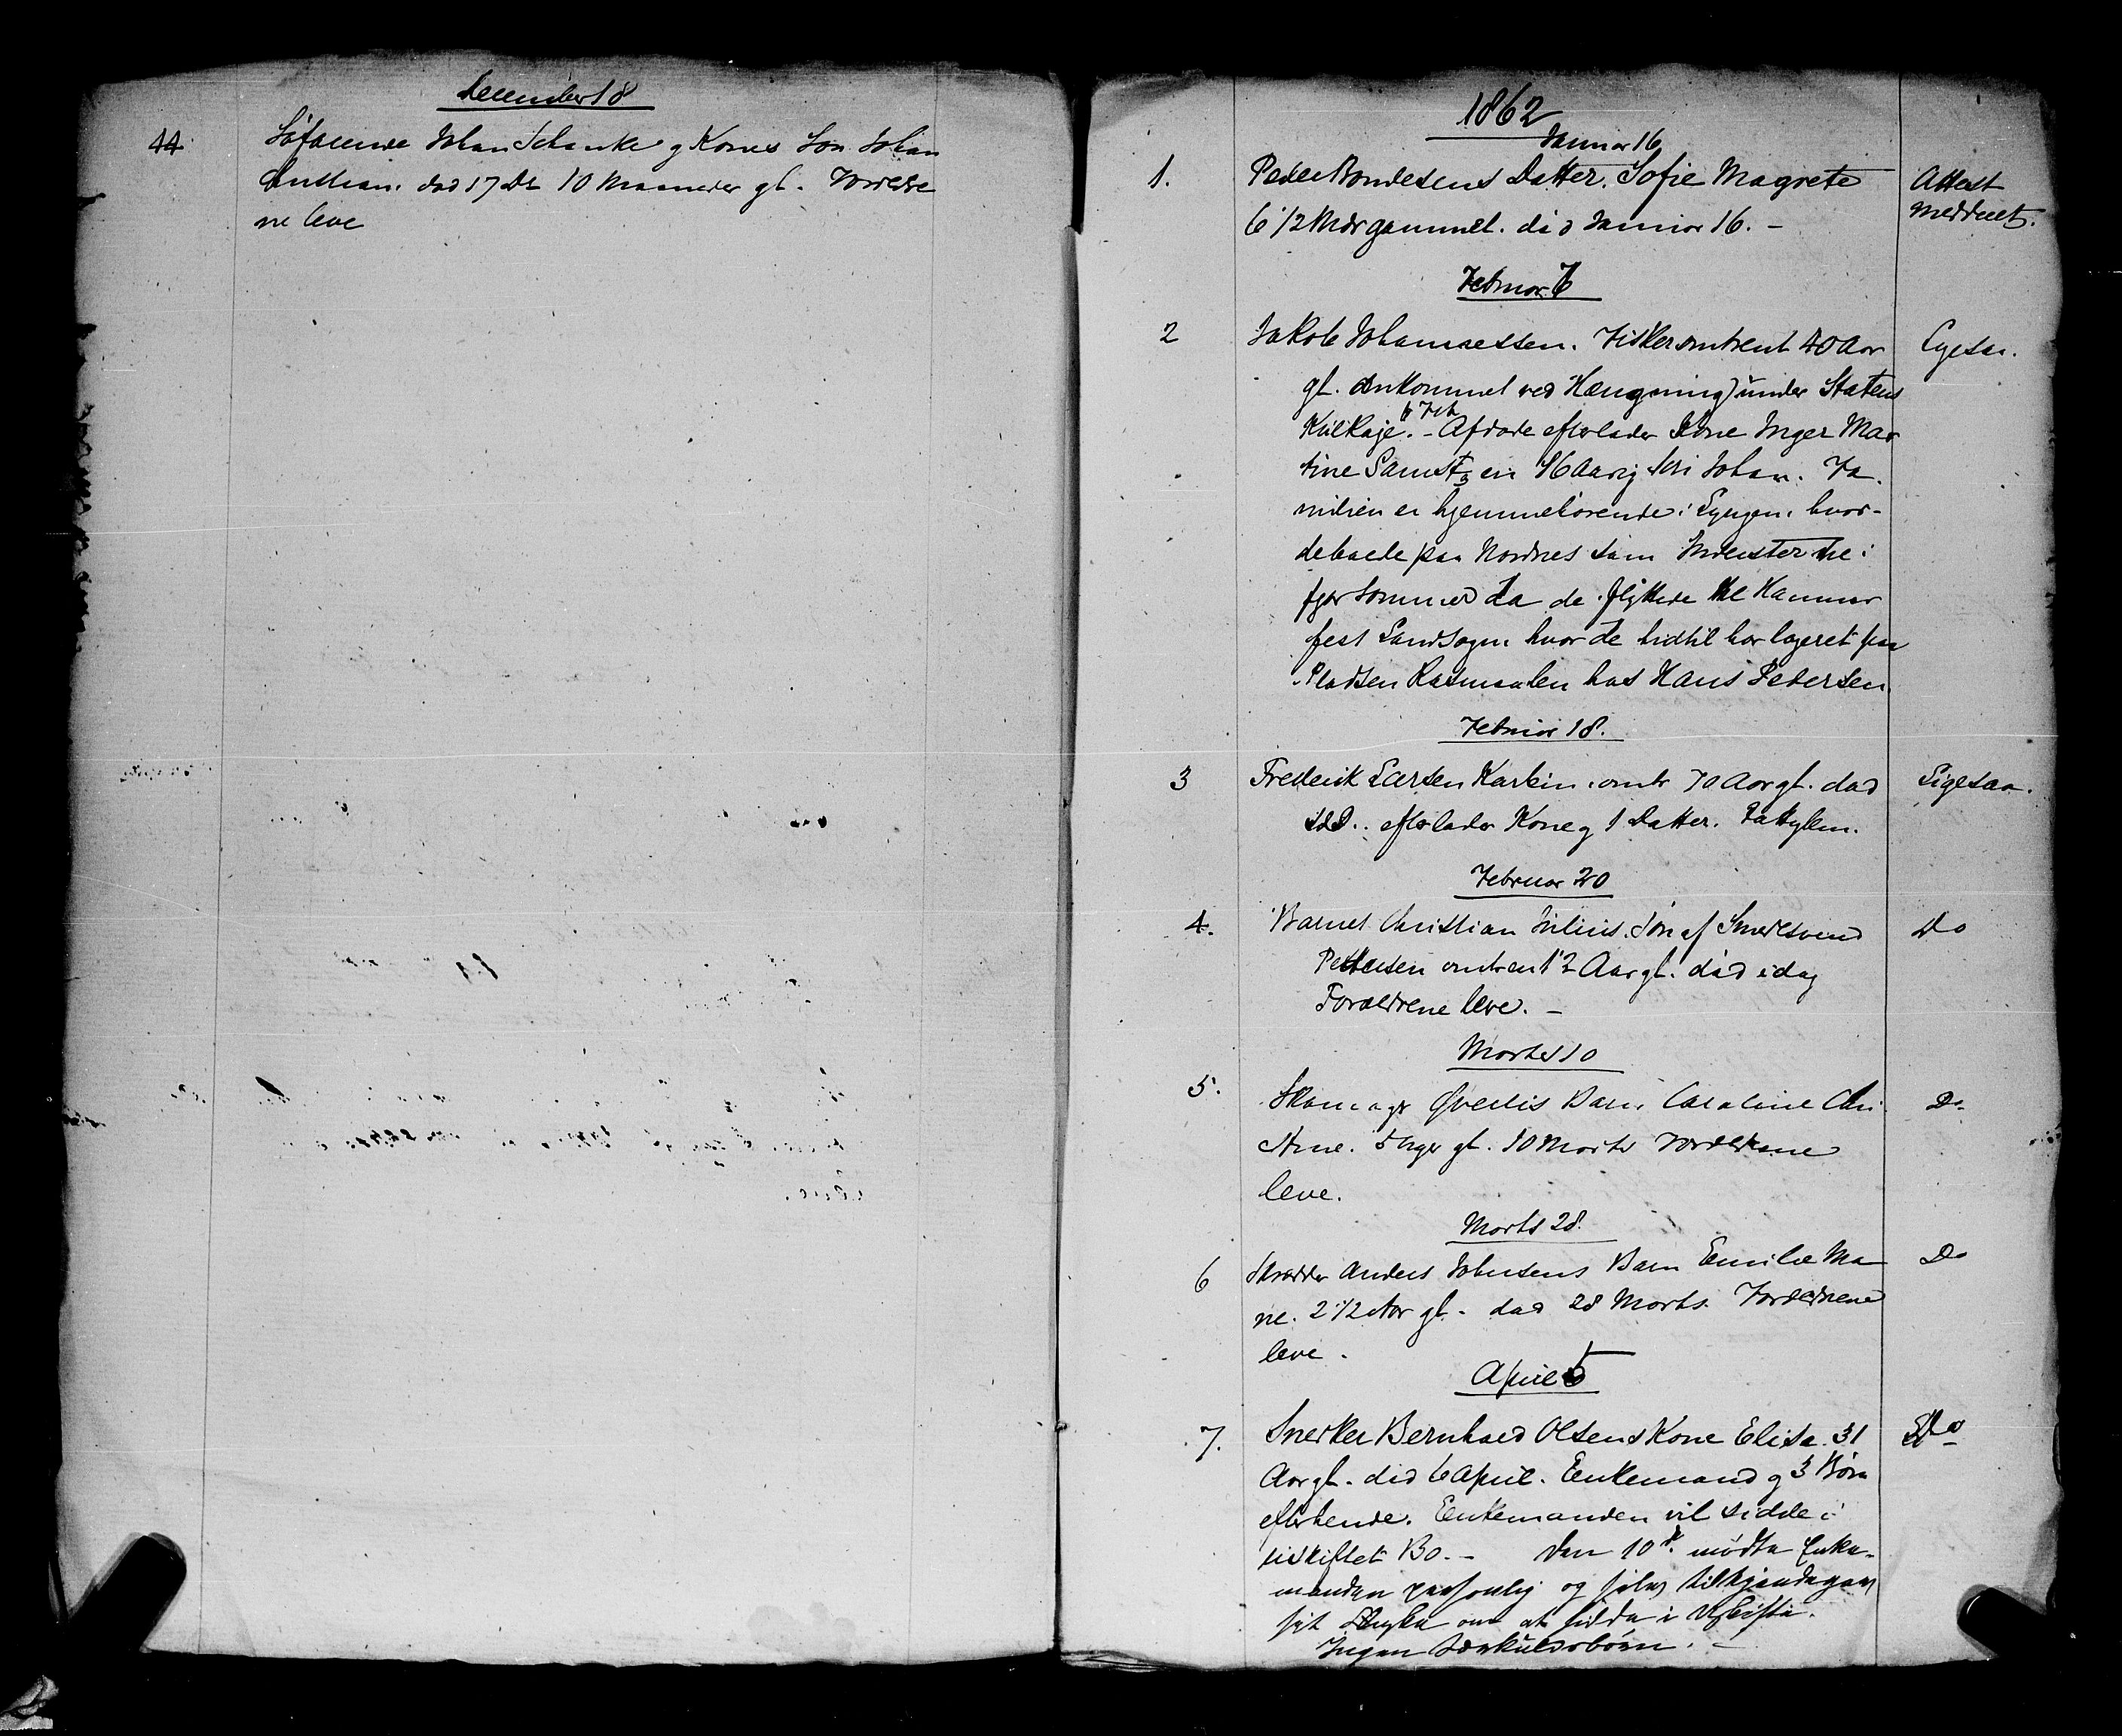 December 18
44 Søfarende Johan Schanke og Kones Søn Johan
Christian. død 17 Ds 10 Maaneder gl. Forældre
ne leve
1862
Januar 16
1. Peder Bondesens Datter. Sofie Magrete Attest
6 1/2 Mdr gammel. død Januar 16. – meddeelt.
Februar 6
2 Jakob Johannessen. Fisker omtrent 40 Aar Ligesaa.
gl. omkommet ved Hængning under Statens
Kulkaje. 6 Feb – Afdøde efterlader Kone Inger Mar
tine samt en 16 Aarig Søn Johan. Fa
milien er hjemmehørende i Lyngen, hvor
de boede paa Nordnes som Inderster til i
fjor Sommer da de flyttede til Hammer
fest Landsogn hvor de hidtil har logeret paa
Pladsen hos Hans Pedersen.
Februar 18.
3 Frederik Larsen omtr 70 Aar gl. død Ligesaa.
efterlader Kone og 1 Datter.
Februar 20
4. Barnet Christian Julius. Søn af Smedesvend Do
Pettersen omtrent 2 Aar gl. død idag
Forældrene leve. –
Marts 10
5. Skomager Barn Caroline Chri Do
stine. 5 Uger gl. 10 Marts Forældrene
leve.
Marts 28.
6 Skrædder Anders Johnsens Barn Emilie Ma Do
rie. 2 1/2 Aar gl. død 28 Marts. Forældrene
leve.
April 5
7. Snedker Bernhard Olsens Kone Elisa. 31 Do
Aar gl. død 6 April. Enkemand og 3 Børn
efterlevende. Enkemanden vil sidde i
uskiftet Bo. – Den 10de mødte Enke-
manden personlig og selv tilkjendegav
sit Ønske om at sidde i uskifte.
Ingen Særkuldsbørn. –